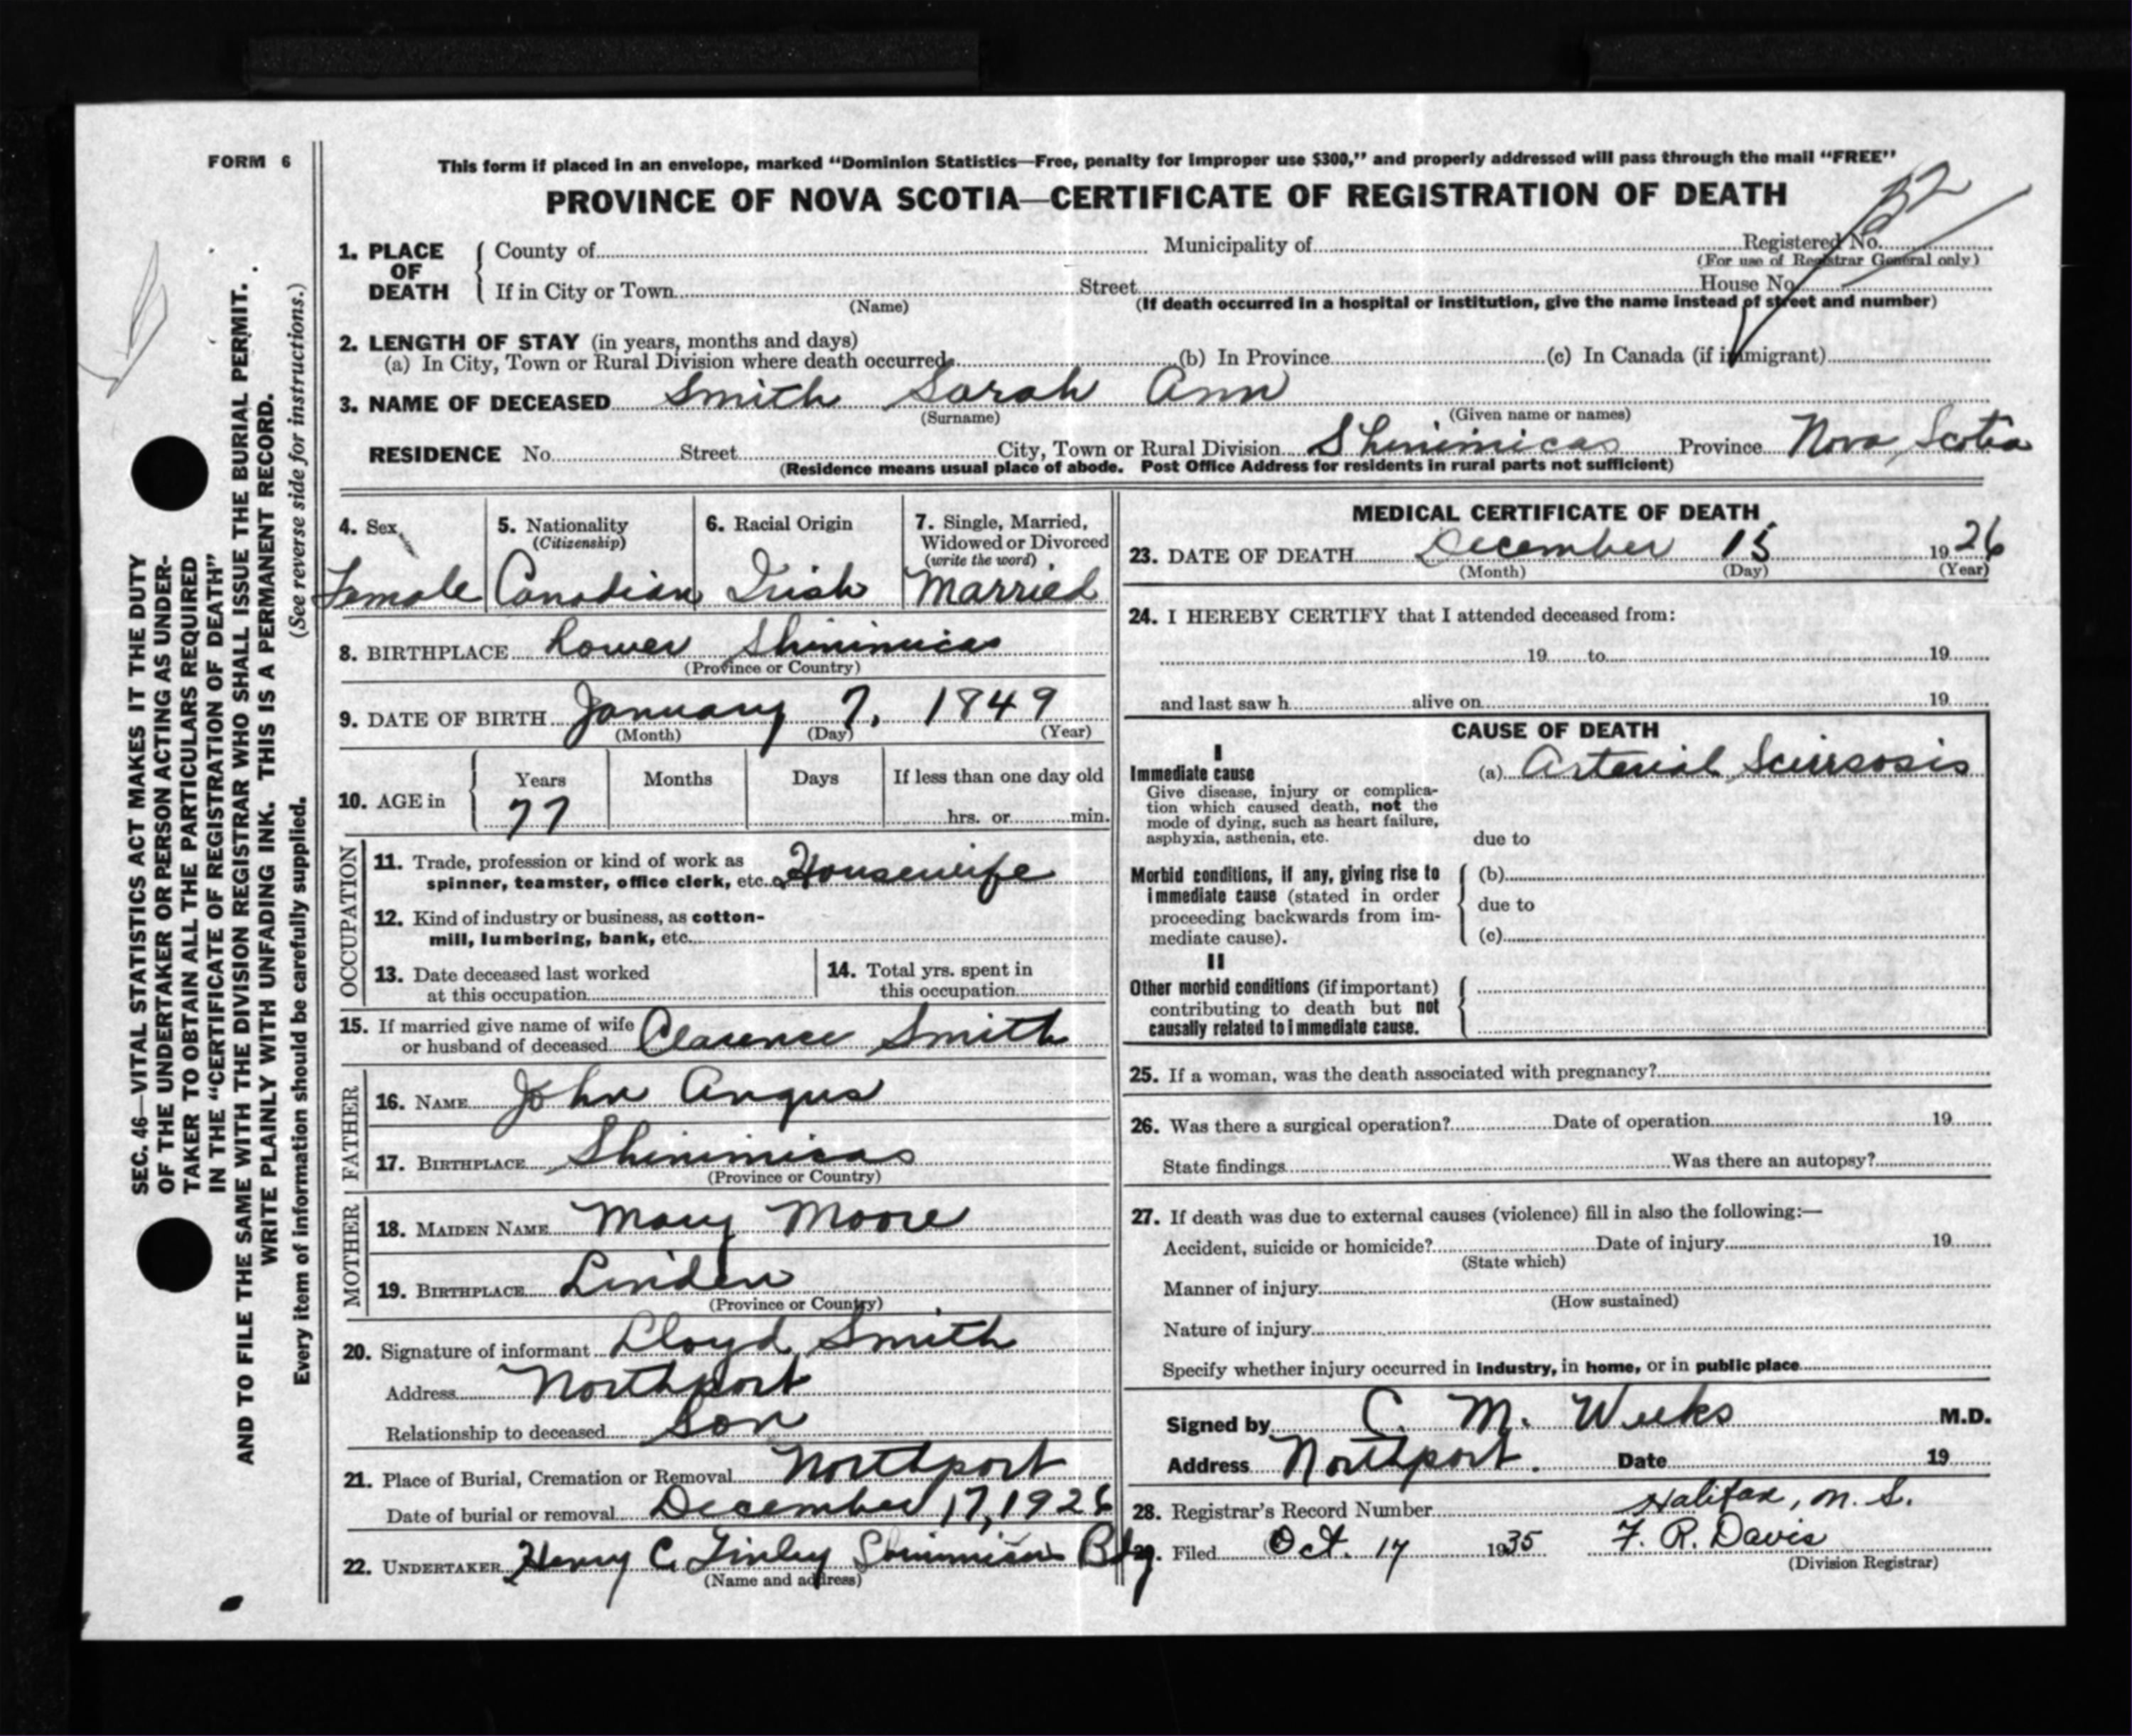 FORM 6
This form if placed in an envelope, marked "Dominion Statistics—Free, penalty for improper use $300," and properly addressed will pass through the mail "FREE"
PROVINCE OF NOVA SCOTIA—CERTIFICATE OF REGISTRATION OF DEATH
1. PLACE OF DEATH
County of
Municipality of
Registered No.
(For use of Registrar General only)
If in City or Town
(Name)
Street
House No.
(If death occurred in a hospital or institution, give the name instead of street and number)
2. LENGTH OF STAY (in years, months and days)
(a) In City, Town or Rural Division where death occurred (b) In Province (c) In Canada (if immigrant)
3. NAME OF DECEASED Smith Sarah Ann
(Surname) (Given name or names)
RESIDENCE No. Street City, Town or Rural Division Shinimicas Province Nova Scotia
(Residence means usual place of abode. Post Office Address for residents in rural parts not sufficient)
4. Sex
Female
5. Nationality
(Citizenship)
Canadian
6. Racial Origin
Irish
7. Single, Married,
Widowed or Divorced
(write the word)
Married
8. BIRTHPLACE Lower Shinimicas
(Province or Country)
9. DATE OF BIRTH January 7, 1849
(Month) (Day) (Year)
10. AGE in
Years Months Days If less than one day old
77 hrs. or min.
OCCUPATION
11. Trade, profession or kind of work as
spinner, teamster, office clerk, etc. Housewife
12. Kind of industry or business, as cotton-
mill, lumbering, bank, etc.
13. Date deceased last worked
at this occupation
14. Total yrs. spent in
this occupation
15. If married give name of wife
or husband of deceased Clarence Smith
FATHER
16. NAME John Angus
17. BIRTHPLACE Shinimicas
(Province or Country)
MOTHER
18. MAIDEN NAME Mary Moore
19. BIRTHPLACE Linden
(Province or Country)
20. Signature of informant Lloyd Smith
Address Northport
Relationship to deceased Son
21. Place of Burial, Cremation or Removal Northport
Date of burial or removal December 17, 1926
22. UNDERTAKER Henry C. Finley Shinimicas Bdg
(Name and address)
MEDICAL CERTIFICATE OF DEATH
23. DATE OF DEATH December 15 1926
(Month) (Day) (Year)
24. I HEREBY CERTIFY that I attended deceased from:
19 to 19
and last saw h alive on 19
CAUSE OF DEATH
I
Immediate cause
Give disease, injury or complica-
tion which caused death, not the
mode of dying, such as heart failure,
asphyxia, asthenia, etc.
(a) Arterial Scirrsosis
due to
Morbid conditions, if any, giving rise to
immediate cause (stated in order
proceeding backwards from im-
mediate cause).
(b)
due to
(c)
II
Other morbid conditions (if important)
contributing to death but not
causally related to immediate cause.
25. If a woman, was the death associated with pregnancy?
26. Was there a surgical operation? Date of operation 19
State findings Was there an autopsy?
27. If death was due to external causes (violence) fill in also the following:—
Accident, suicide or homicide? Date of injury 19
(State which)
Manner of injury
(How sustained)
Nature of injury
Specify whether injury occurred in industry, in home, or in public place
Signed by C. M. Weeks M.D.
Address Northport. Date 19
28. Registrar's Record Number Halifax, N. S.
29. Filed Oct. 17 1935 F. R. Davis
(Division Registrar)
SEC. 46—VITAL STATISTICS ACT MAKES IT THE DUTY
OF THE UNDERTAKER OR PERSON ACTING AS UNDER-
TAKER TO OBTAIN ALL THE PARTICULARS REQUIRED
IN THE "CERTIFICATE OF REGISTRATION OF DEATH"
AND TO FILE THE SAME WITH THE DIVISION REGISTRAR WHO SHALL ISSUE THE BURIAL PERMIT.
WRITE PLAINLY WITH UNFADING INK. THIS IS A PERMANENT RECORD.
Every item of information should be carefully supplied. (See reverse side for instructions.)